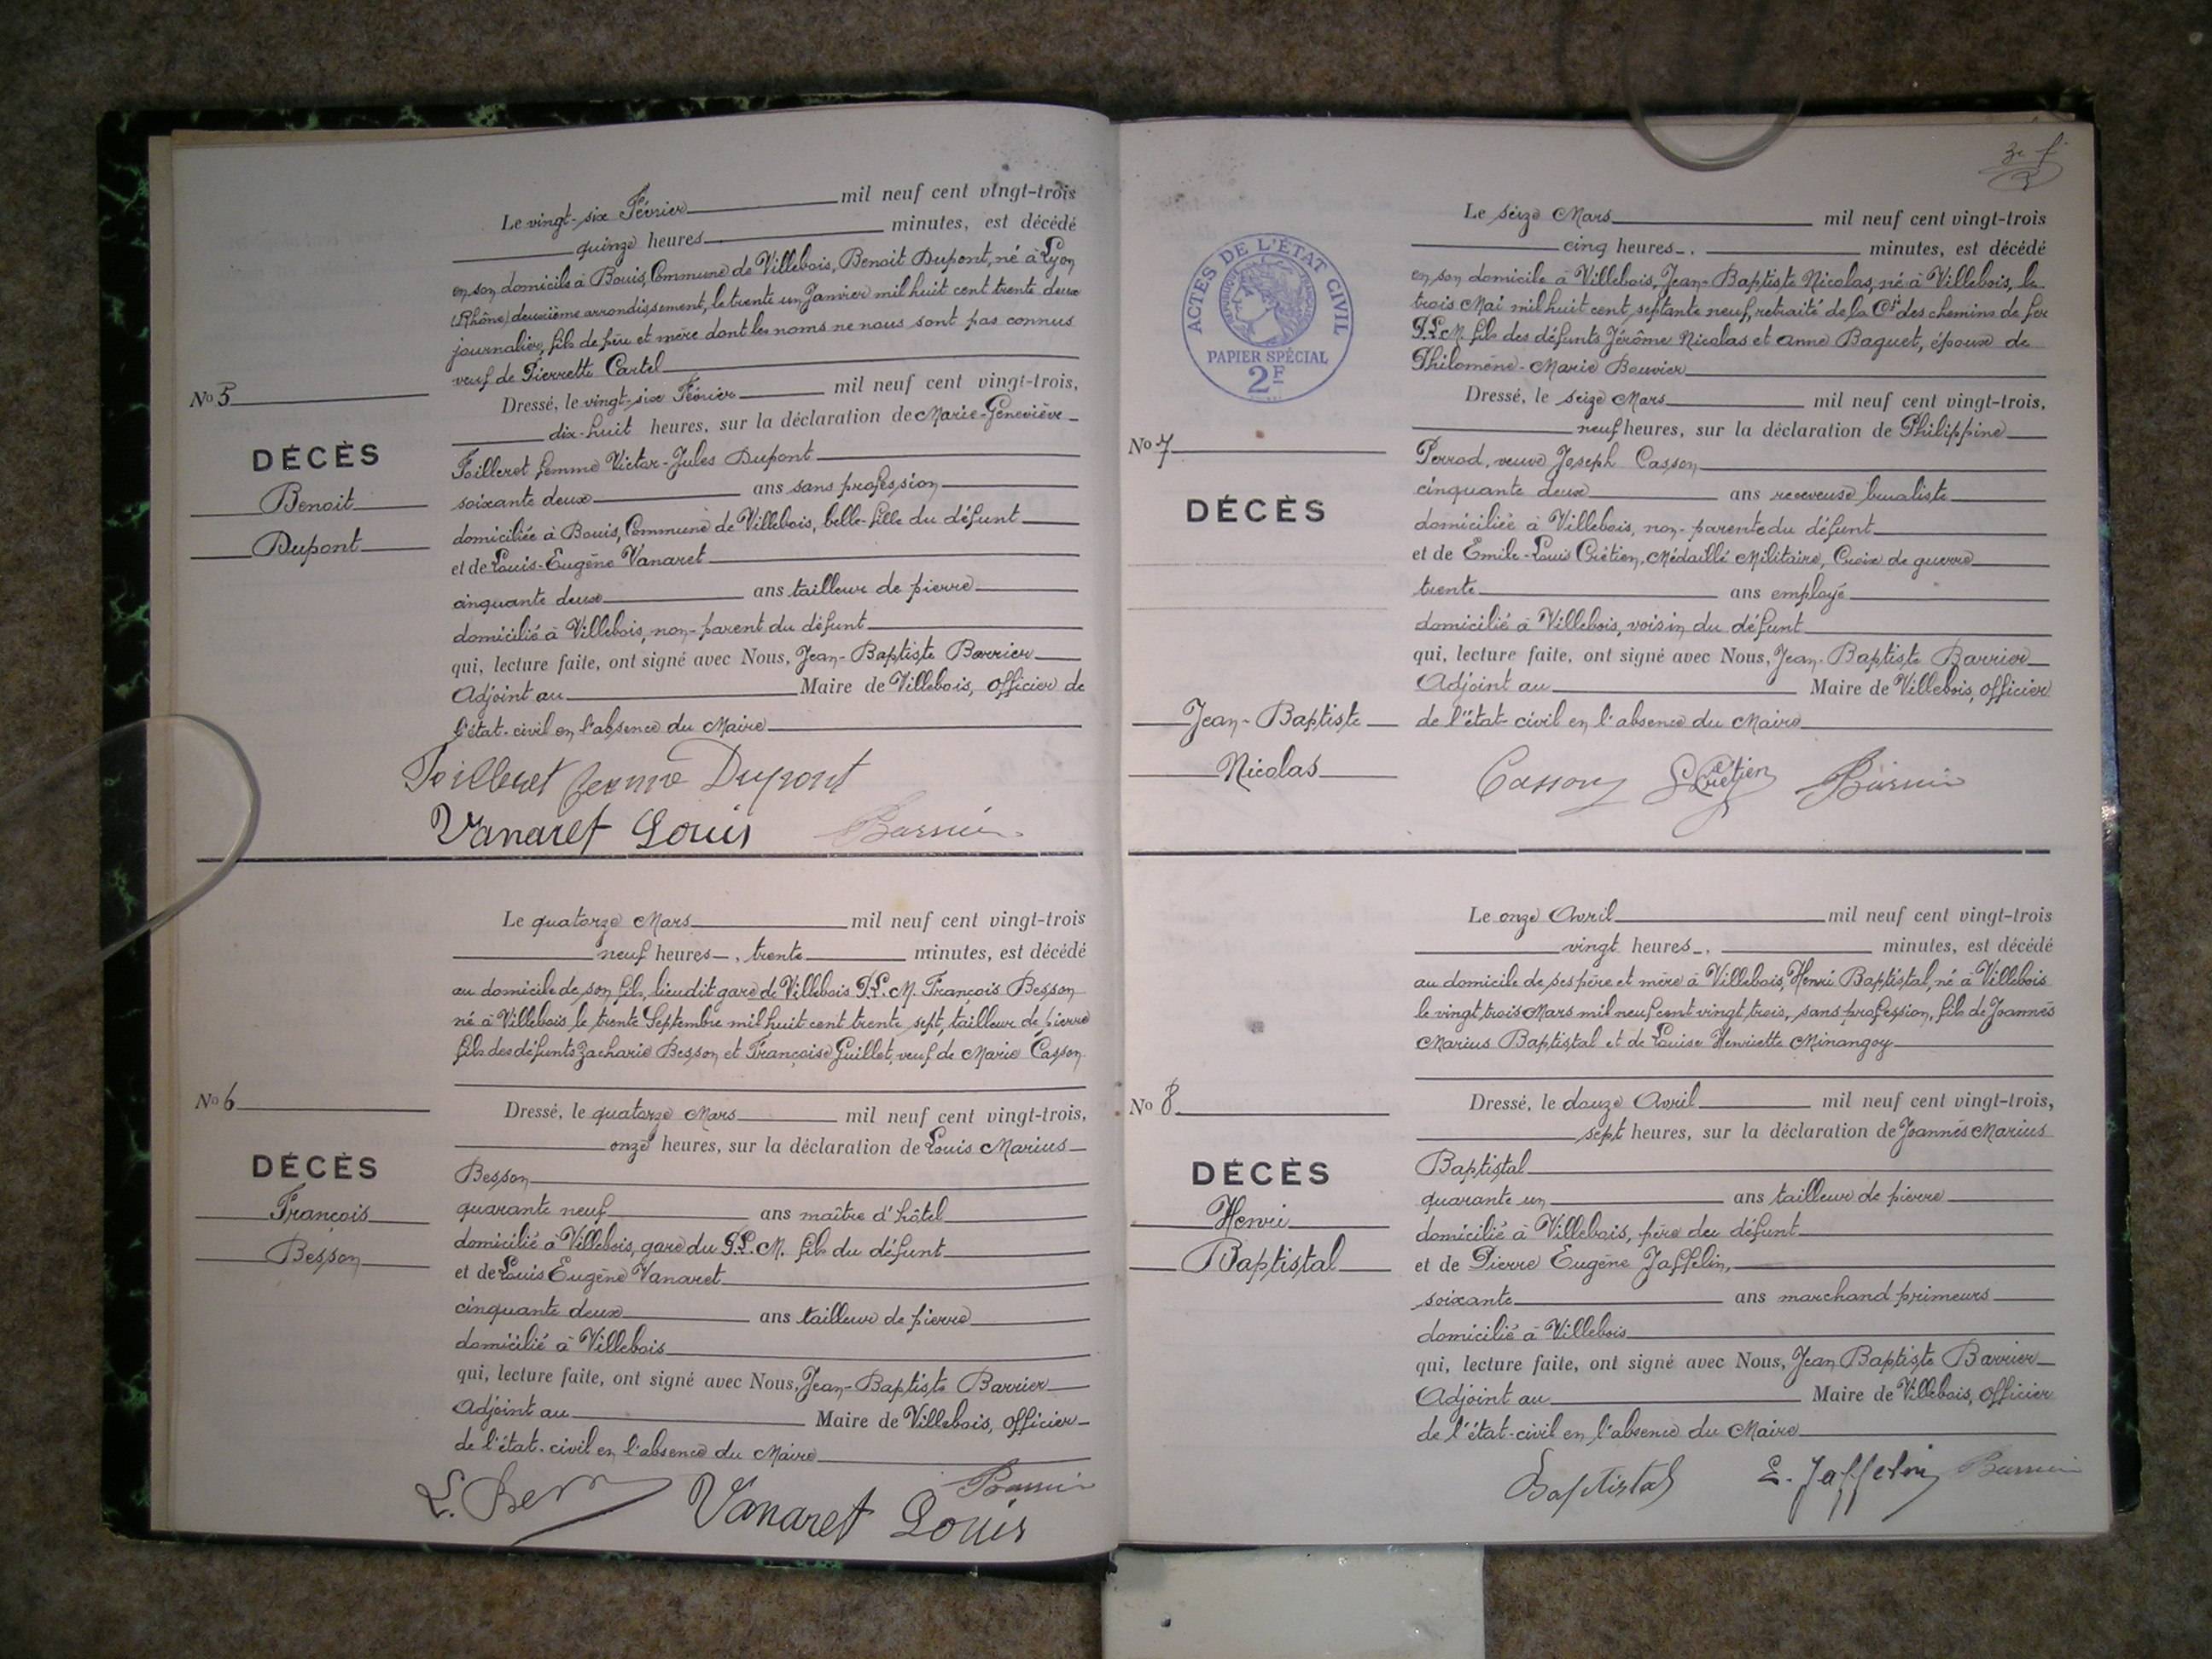 Le vingt-six Février mil neuf cent vingt-trois
quinze heures minutes, est décédé
en son domicile à Bouis, Commune de Villebois, Benoit Dupont, né à Lyon
(Rhône) deuxième arrondissement, le trente un Janvier mil huit cent trente deux
journalier, fils de père et mère dont les noms ne nous sont pas connus
veuf de Pierrette Cartel
No 5
Dressé, le vingt-six Février mil neuf cent vingt-trois,
dix-huit heures, sur la déclaration de Marie-Geneviève
DÉCÈS
Benoit
Dupont
Toilleret femme Victor-Jules Dupont
soixante deux ans sans profession
domiciliée à Bouis, Commune de Villebois, belle-fille du défunt
et de Louis-Eugène Vanaret
cinquante deux ans tailleur de pierre
domicilié à Villebois, non-parent du défunt
qui, lecture faite, ont signé avec Nous, Jean-Baptiste Barrier
Adjoint au Maire de Villebois, officier de
l'état-civil en l'absence du Maire
Toilleret femme Dupont
Vanaret Louis Barrier
Le quatorze Mars mil neuf cent vingt-trois
neuf heures, trente minutes, est décédé
au domicile de son fils, lieu dit gare de Villebois P.L.M. François Besson
né à Villebois le trente Septembre mil huit cent trente sept, tailleur de pierre
fils des défunts Zacharie Besson et Françoise Guillet, veuf de Marie Casson
No 6
Dressé, le quatorze Mars mil neuf cent vingt-trois,
onze heures, sur la déclaration de Louis Marius
DÉCÈS
François
Besson
Besson
quarante neuf ans maître d'hôtel
domicilié à Villebois, gare du P.L.M. fils du défunt
et de Louis Eugène Vanaret
cinquante deux ans tailleur de pierre
domicilié à Villebois
qui, lecture faite, ont signé avec Nous, Jean-Baptiste Barrier
Adjoint au Maire de Villebois, officier
de l'état-civil en l'absence du Maire
Vanaret Louis Barrier
ACTES DE L'ÉTAT CIVIL
PAPIER SPÉCIAL
2F
Le seize Mars mil neuf cent vingt-trois
cinq heures. minutes, est décédé
en son domicile à Villebois, Jean-Baptiste Nicolas, né à Villebois, le
trois Mai mil huit cent septante neuf, retraité de la Cie des chemins de fer
P.L.M. fils des défunts Jérôme Nicolas et Anne Baguet, époux de
Philomène-Marie Bouvier
Dressé, le seize Mars mil neuf cent vingt-trois,
neuf heures, sur la déclaration de Philippine
No 7
DÉCÈS
Jean-Baptiste
Nicolas
Perrod, veuve Joseph Casson
cinquante deux ans receveuse buraliste
domiciliée à Villebois, non-parente du défunt
et de Emile-Louis Crétien, Médaillé Militaire, Croix de guerre
trente ans employé
domicilié à Villebois, voisin du défunt
qui, lecture faite, ont signé avec Nous, Jean-Baptiste Barrier
Adjoint au Maire de Villebois, officier
de l'état-civil en l'absence du Maire
Casson Crétien Barrier
Le onze Avril mil neuf cent vingt-trois
vingt heures. minutes, est décédé
au domicile de ses père et mère à Villebois, Henri Baptistal, né à Villebois
le vingt trois Mars mil neuf cent vingt trois, sans profession, fils de Joannès
Marius Baptistal et de Louise Henriette Minangoy
No 8
Dressé, le douze Avril mil neuf cent vingt-trois,
sept heures, sur la déclaration de Joannès Marius
DÉCÈS
Henri
Baptistal
Baptistal
quarante un ans tailleur de pierre
domicilié à Villebois, père du défunt
et de Pierre Eugène Jaffelin,
soixante ans marchand primeurs
domicilié à Villebois
qui, lecture faite, ont signé avec Nous, Jean Baptiste Barrier
Adjoint au Maire de Villebois, officier
de l'état-civil en l'absence du Maire
Baptistal E. Jaffelin Barrier